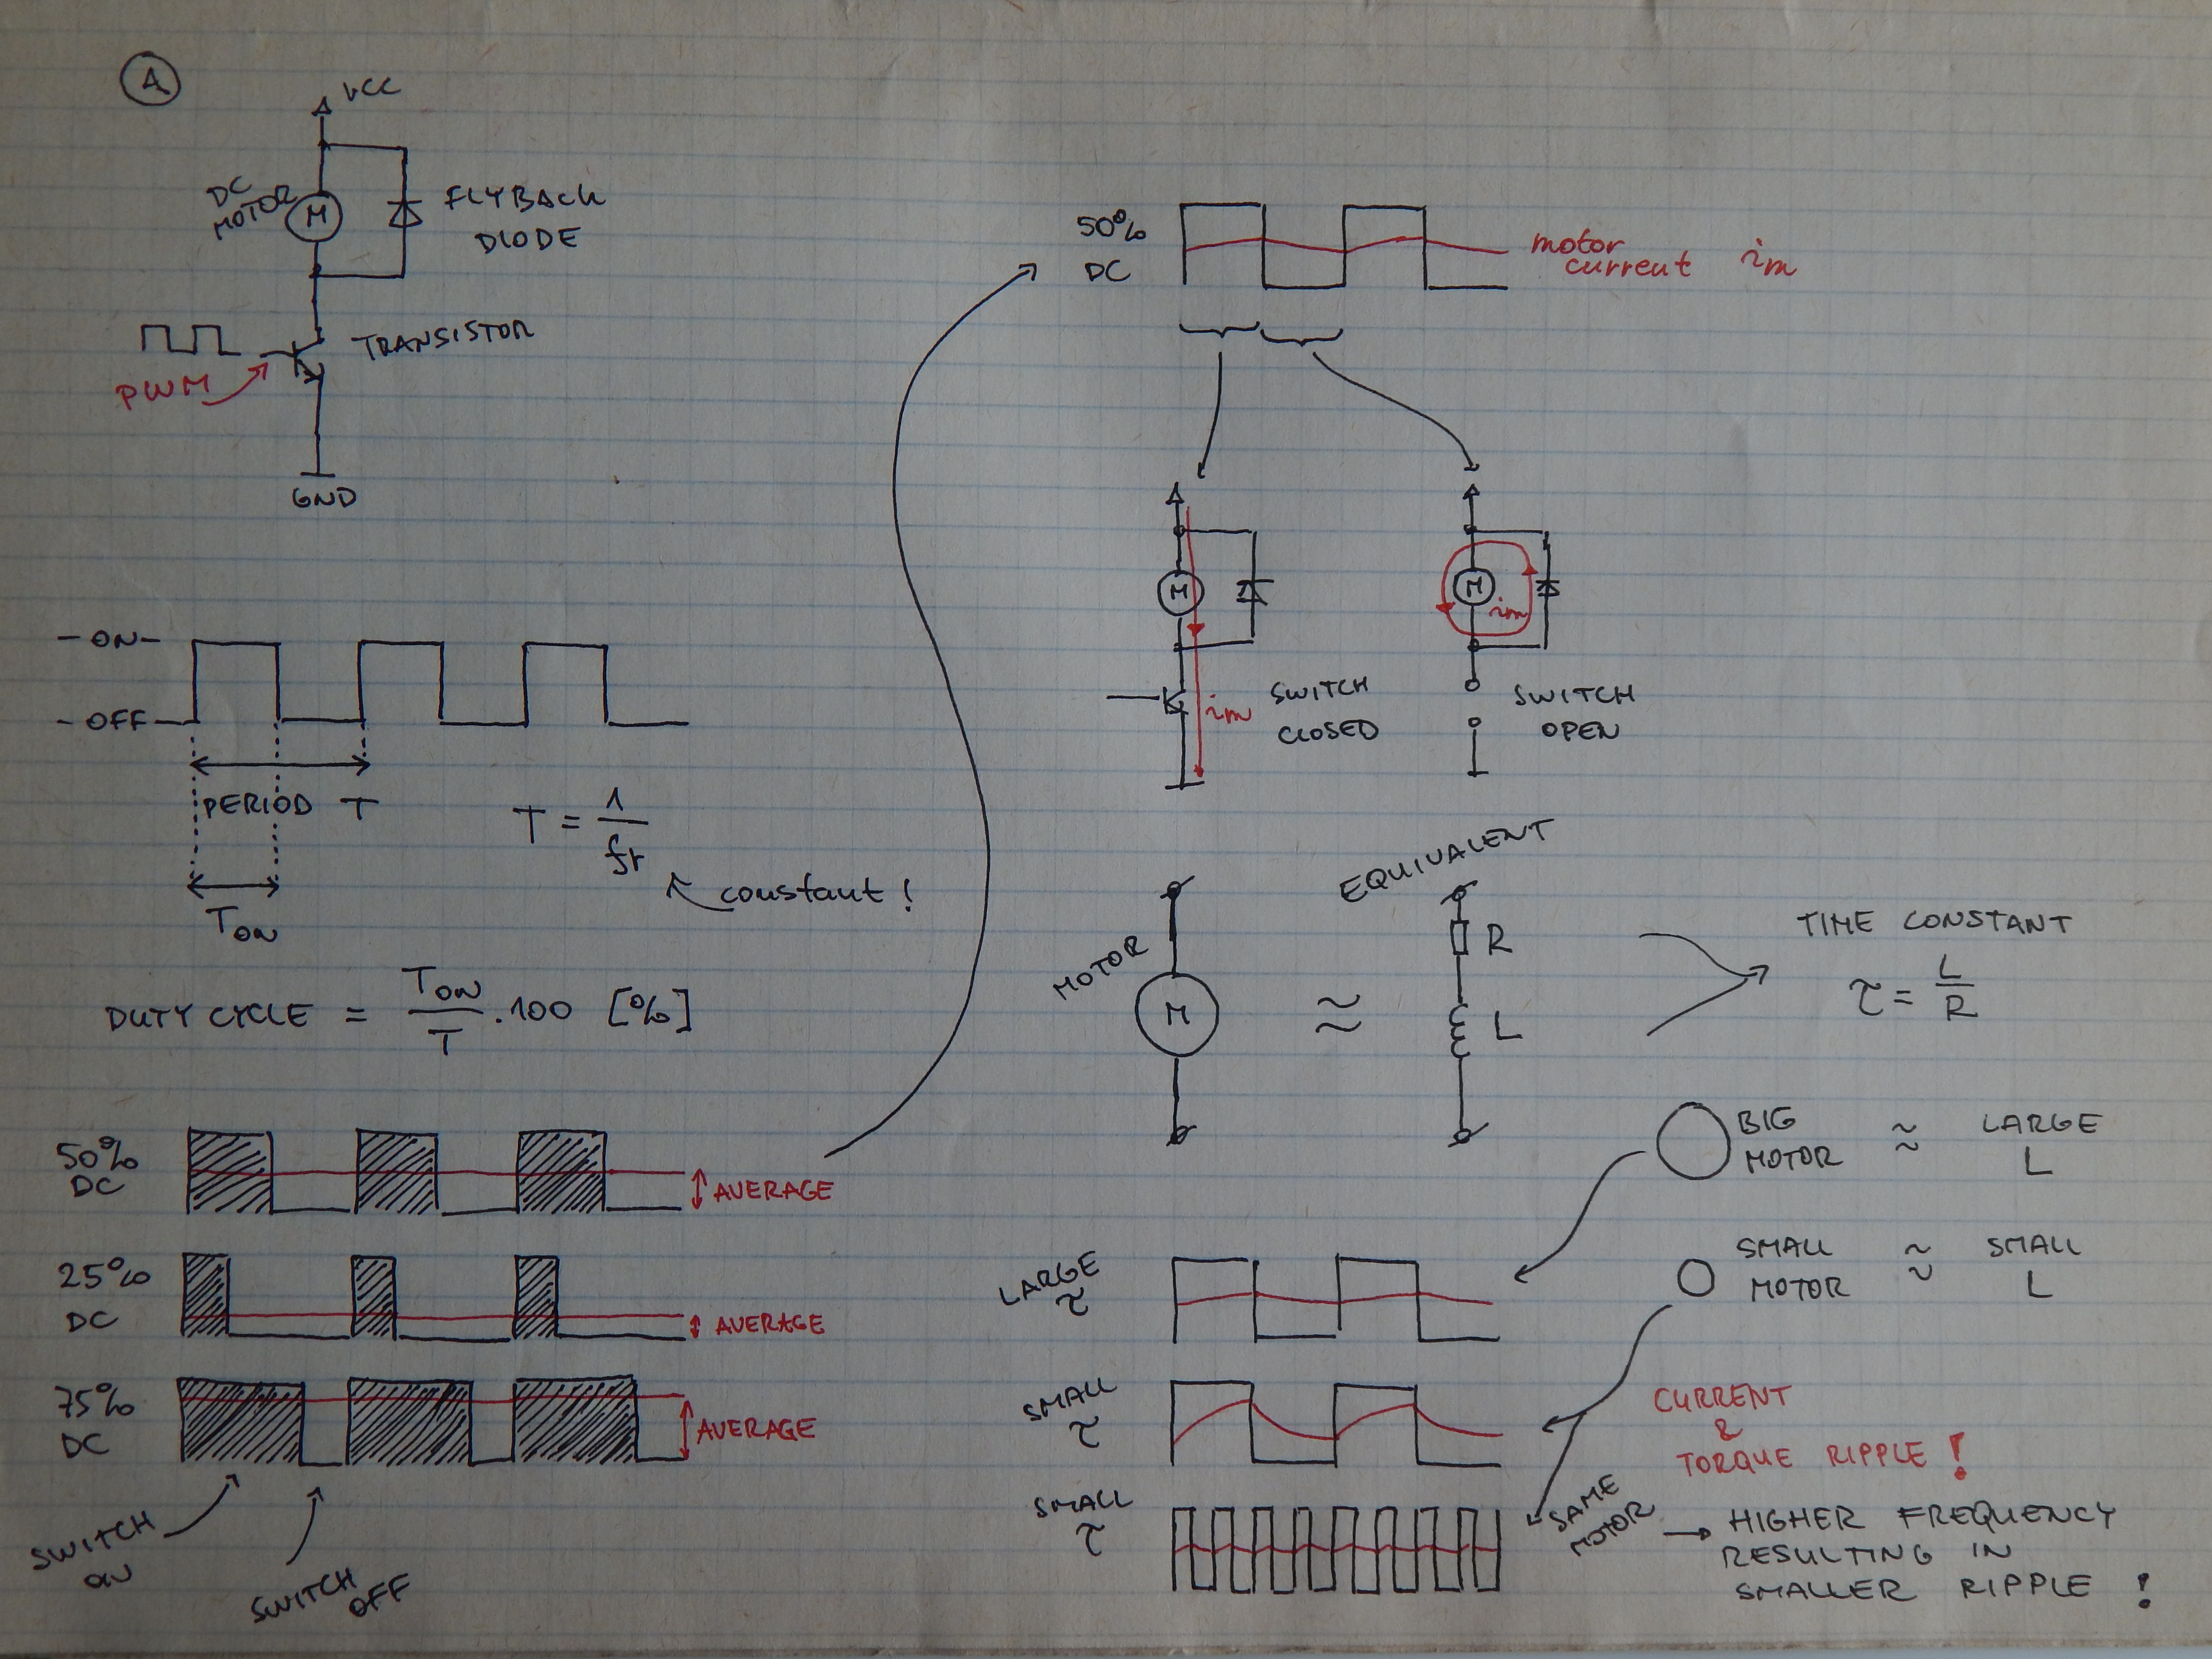 A
VCC
DC
MOTOR
M
FLYBACK
DIODE
TRANSISTOR
PWM
GND
- ON -
- OFF -
PERIOD T
T = 1/fr
constant !
TON
DUTY CYCLE = TON/T . 100 [%]
50%
DC
AVERAGE
25%
DC
AVERAGE
75%
DC
AVERAGE
SWITCH
ON
SWITCH
OFF
50%
DC
motor
current im
M
im
SWITCH
CLOSED
M
im
SWITCH
OPEN
MOTOR
M
≈
EQUIVALENT
R
L
TIME CONSTANT
τ = L/R
BIG
MOTOR
≈
LARGE
L
SMALL
MOTOR
≈
SMALL
L
LARGE
τ
SMALL
τ
CURRENT
&
TORQUE RIPPLE !
SMALL
τ
SAME
MOTOR
→ HIGHER FREQUENCY
RESULTING IN
SMALLER RIPPLE !